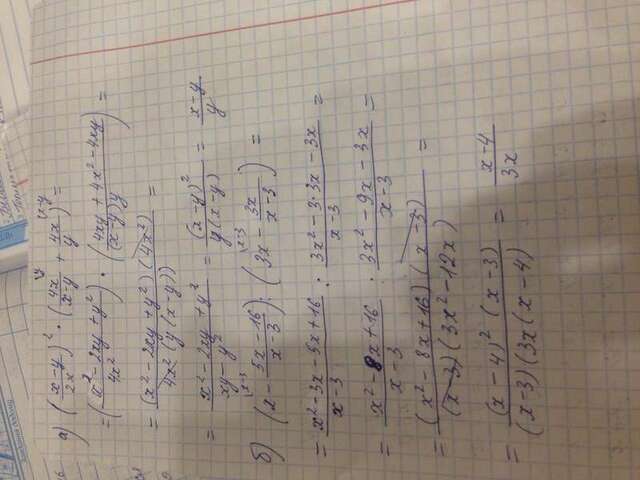 а) ((x-y)/2x)² · (4x/(x-y) + 4x/y) =
= ((x² - 2xy + y²)/4x²) · ((4xy + 4x² - 4xy)/((x-y)y)) =
= (x² - 2xy + y²)(4x²)/(4x²(y(x-y))) =
= (x² - 2xy + y²)/(xy - y²) = (x-y)²/(y(x-y)) = (x-y)/y
б) (x - (5x-16)/(x-3)) : (3x - 3x/(x-3)) =
= (x² - 3x - 5x + 16)/(x-3) : (3x² - 3·3x - 3x)/(x-3) =
= (x² - 8x + 16)/(x-3) : (3x² - 9x - 3x)/(x-3) =
= (x² - 8x + 16)(x-3)/((x-3)(3x² - 12x)) =
= (x-4)² (x-3)/((x-3)(3x(x-4)) = (x-4)/3x